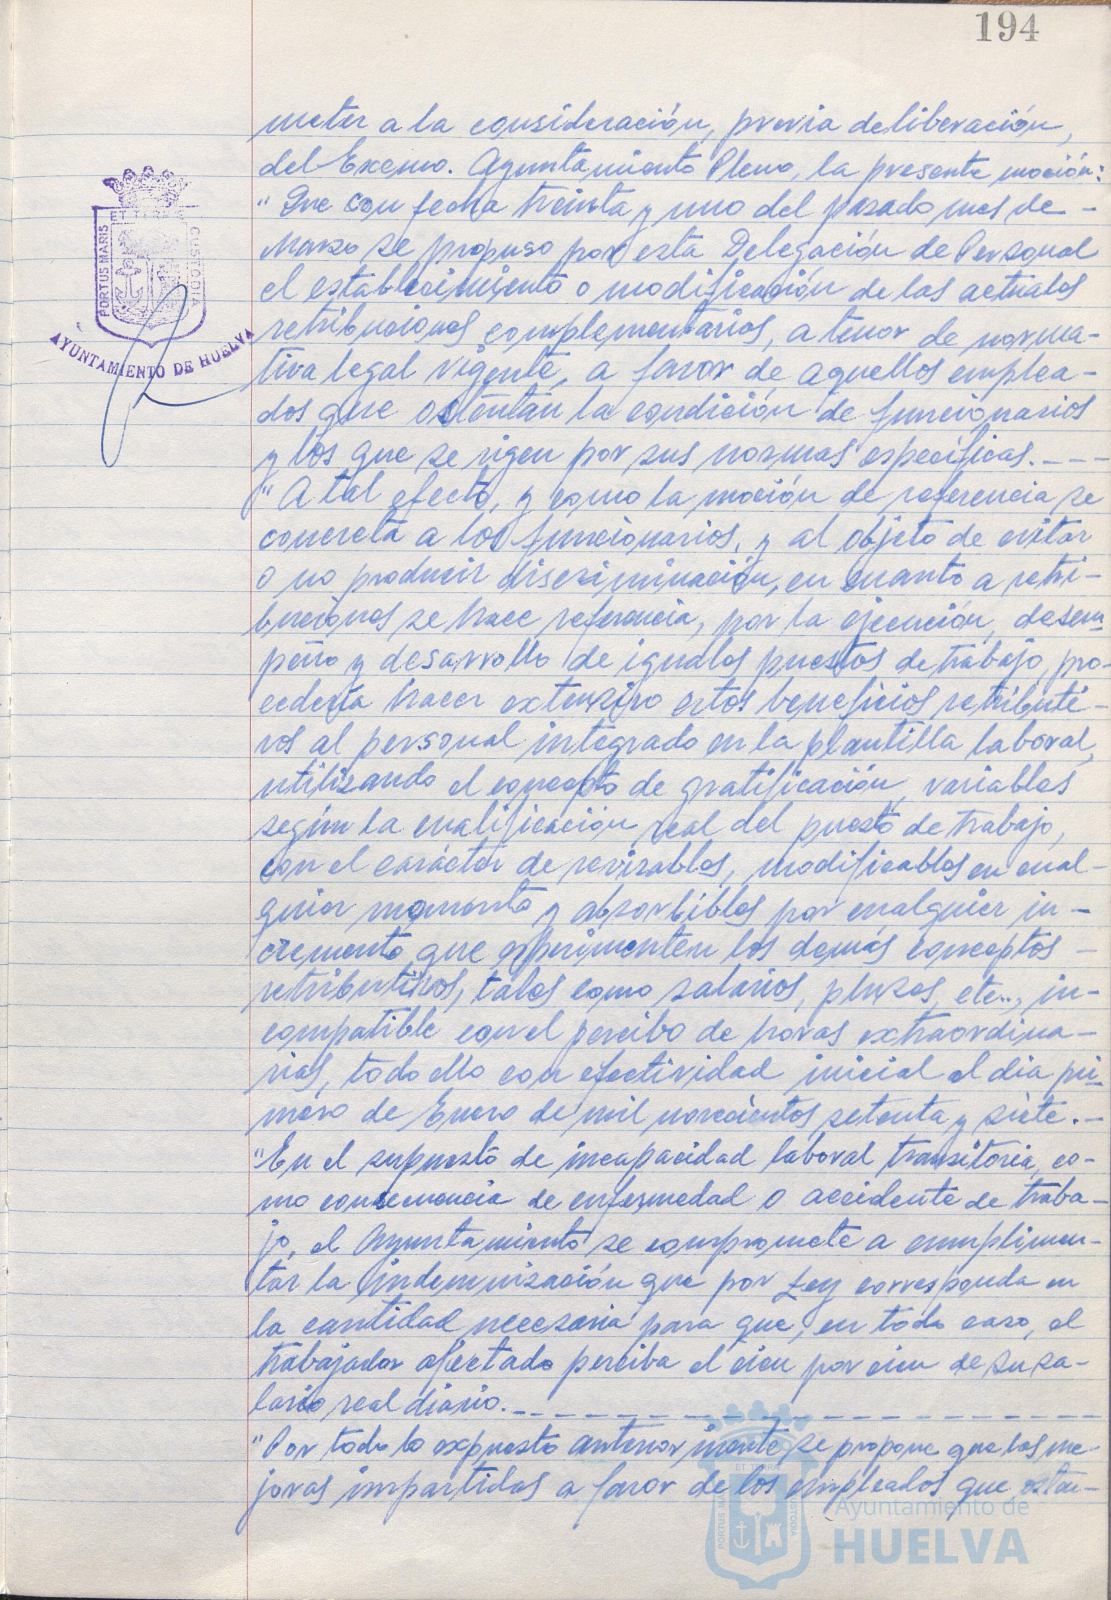 194
meter a la consideración, previa deliberación,
del Excmo. Ayuntamiento Pleno, la presente moción:
"Que con fecha treinta y uno del pasado mes de -
Marzo se propuso por esta Delegación de Personal
el establecimiento o modificación de las actuales
retribuciones complementarias, a tenor de norma-
tiva legal vigente, a favor de aquellos emplea-
dos que ostentan la condición de funcionarios
y los que se rigen por sus normas específicas. - - -
"A tal efecto, y como la moción de referencia se
concreta a los funcionarios, y al objeto de evitar
o no producir discriminación, en cuanto a retri-
buciones se hace referencia, por la ejecución, desem-
peño y desarrollo de iguales puestos de trabajo, pro-
cedería hacer extensivo estos beneficios retributi-
vos al personal integrado en la plantilla laboral,
utilizando el concepto de gratificación, variables
según la cualificación real del puesto de trabajo,
con el carácter de revisables, modificables en cual-
quier momento y absorbibles por cualquier in-
cremento que experimenten los demás conceptos -
retributivos, tales como salarios, pluses, etc.., in-
compatible con el percibo de horas extraordina-
rias, todo ello con efectividad inicial el dia pri-
mero de Enero de mil novecientos setenta y siete. -
"En el supuesto de incapacidad laboral transitoria, co-
mo consecuencia de enfermedad o accidente de traba-
jo, el Ayuntamiento se compromete a cumplimen-
tar la indemnización que por Ley corresponda en
la cantidad necesaria para que, en todo caso, el
trabajador afectado perciba el cien por cien de su sa-
lario real diario. - - - - - - - - - - - - - - - -
"Por todo lo expuesto anteriormente se propone que las me-
joras impartidas a favor de los empleados que osten-
ET TERRÆ
PORTUS MARIS
CUSTODIA
AYUNTAMIENTO DE HUELVA
ET TERRÆ
PORTUS MARIS
CUSTODIA
Ayuntamiento de
HUELVA